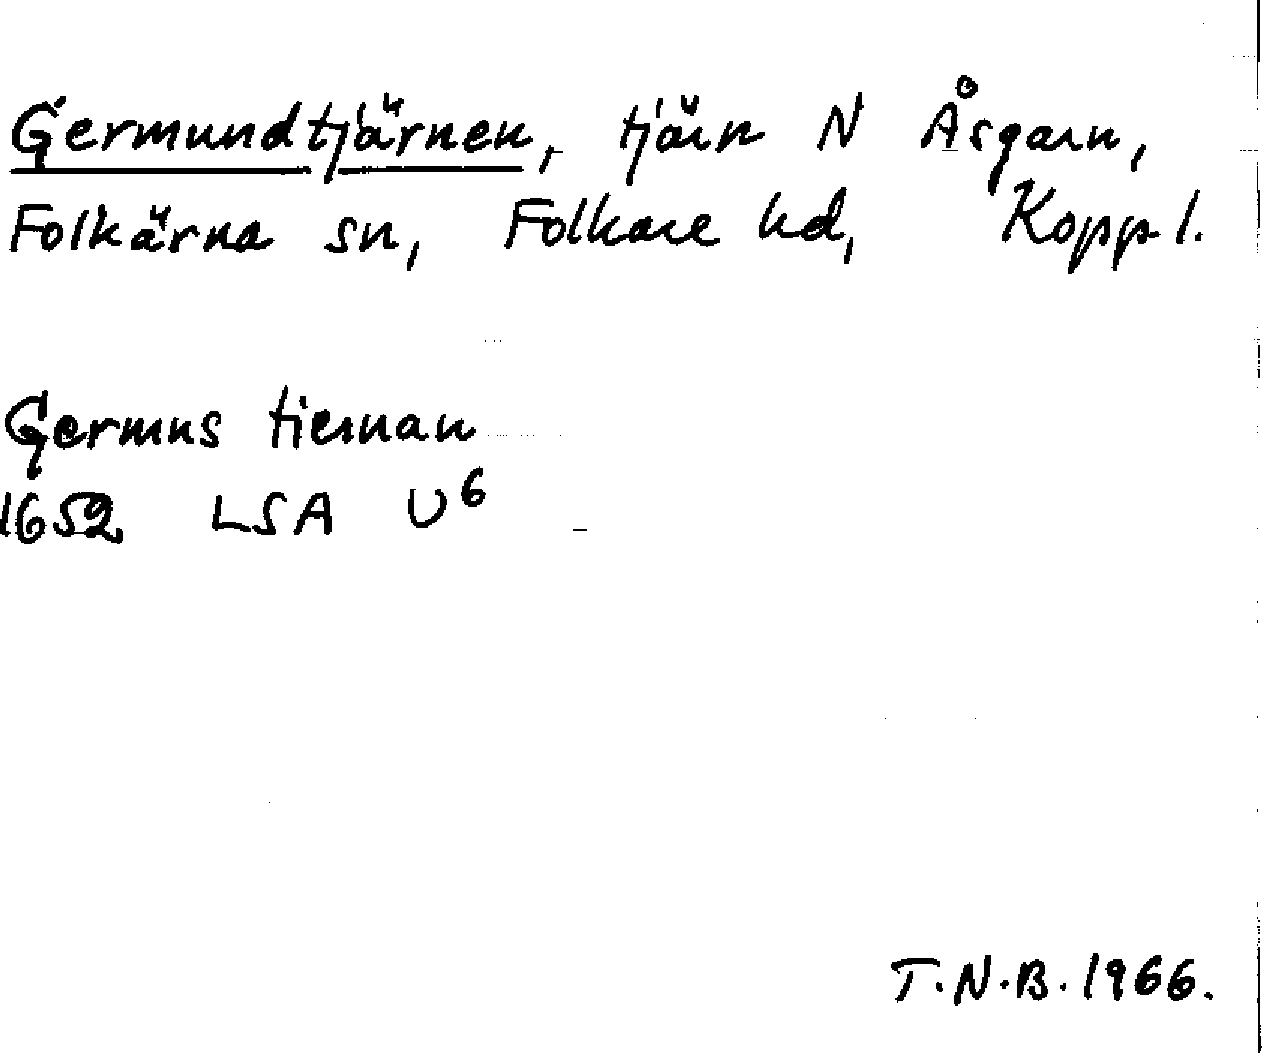 Germundtjärnen, tjärn N Åsgarn,
Folkärna sn, Folkare hd, Kopp l.
Germns tiernan
1652 LSA U6
T.N.B. 1966.